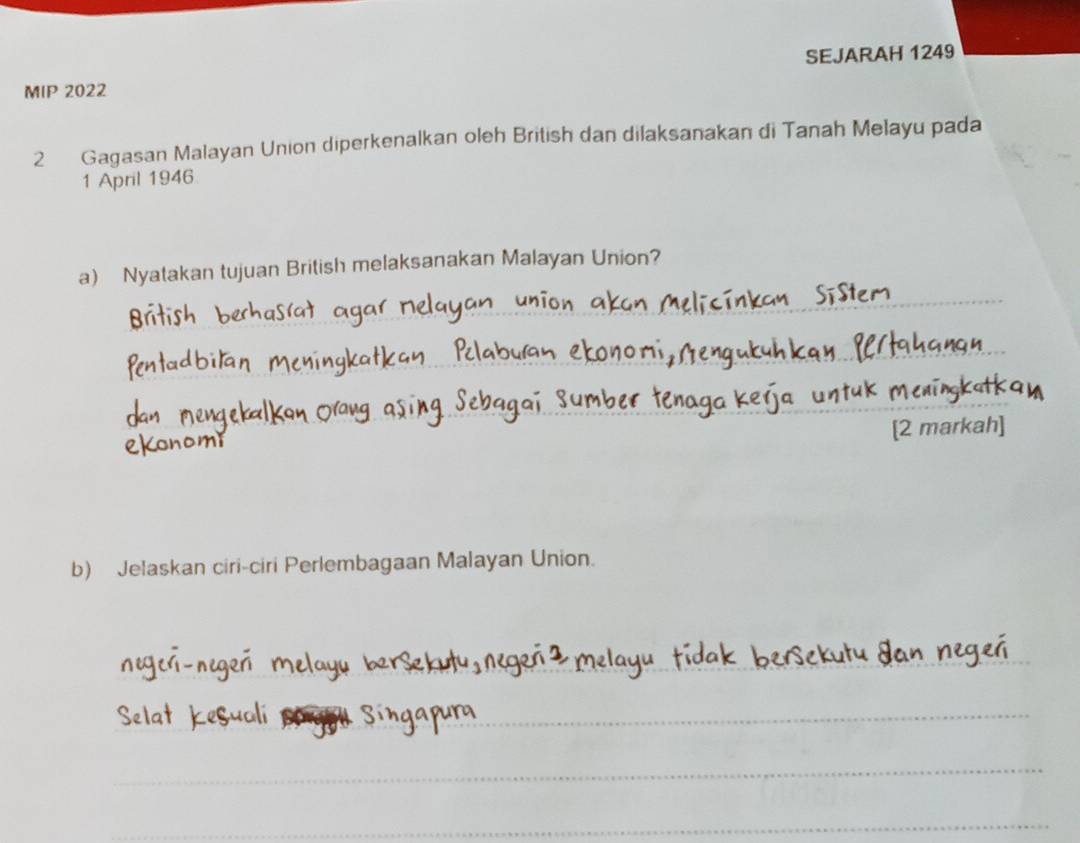 SEJARAH 1249
MIP 2022
2 Gagasan Malayan Union diperkenalkan oleh British dan dilaksanakan di Tanah Melayu pada
1 April 1946
a) Nyatakan tujuan British melaksanakan Malayan Union?
British berhasrat agar melayan union akan melicinkan sistem
Pentadbiran meningkatkan Pelaburan ekonomi, Mengukuhkan Pertahanan
dan mengekalkan orang asing Sebagai sumber tenaga kerja untuk meningkatkan
ekonomi
[2 markah]
b) Jelaskan ciri-ciri Perlembagaan Malayan Union.
negeri-negeri melayu bersekutu, negeri2 melayu tidak bersekutu dan negeri
Selat kesuali Singapura